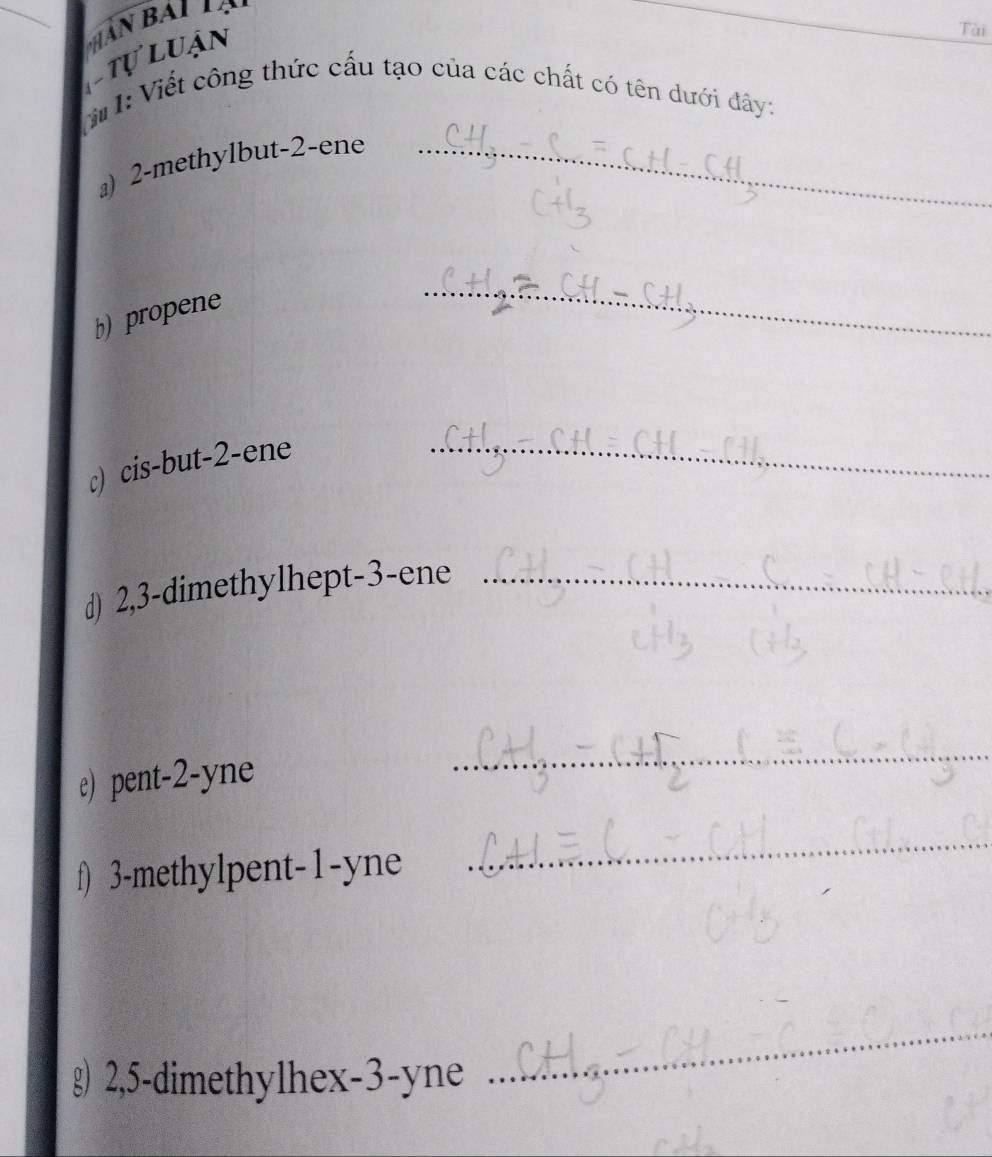 PHẦN BÀI TẬP
Tài
A - TỰ LUẬN
Câu 1: Viết công thức cấu tạo của các chất có tên dưới đây:
a) 2-methylbut-2-ene CH3 - C = CH - CH3
CH3
b) propene CH2 = CH - CH3
c) cis-but-2-ene CH3 - CH = CH - CH3
d) 2,3-dimethylhept-3-ene CH3 - CH - C = CH - CH2
CH3 CH3
e) pent-2-yne CH3 - CH2 - C ≡ C - CH3
f) 3-methylpent-1-yne CH ≡ C - CH - CH2 - CH
CH3
g) 2,5-dimethylhex-3-yne CH3 - CH - C ≡ C - CH
CH3